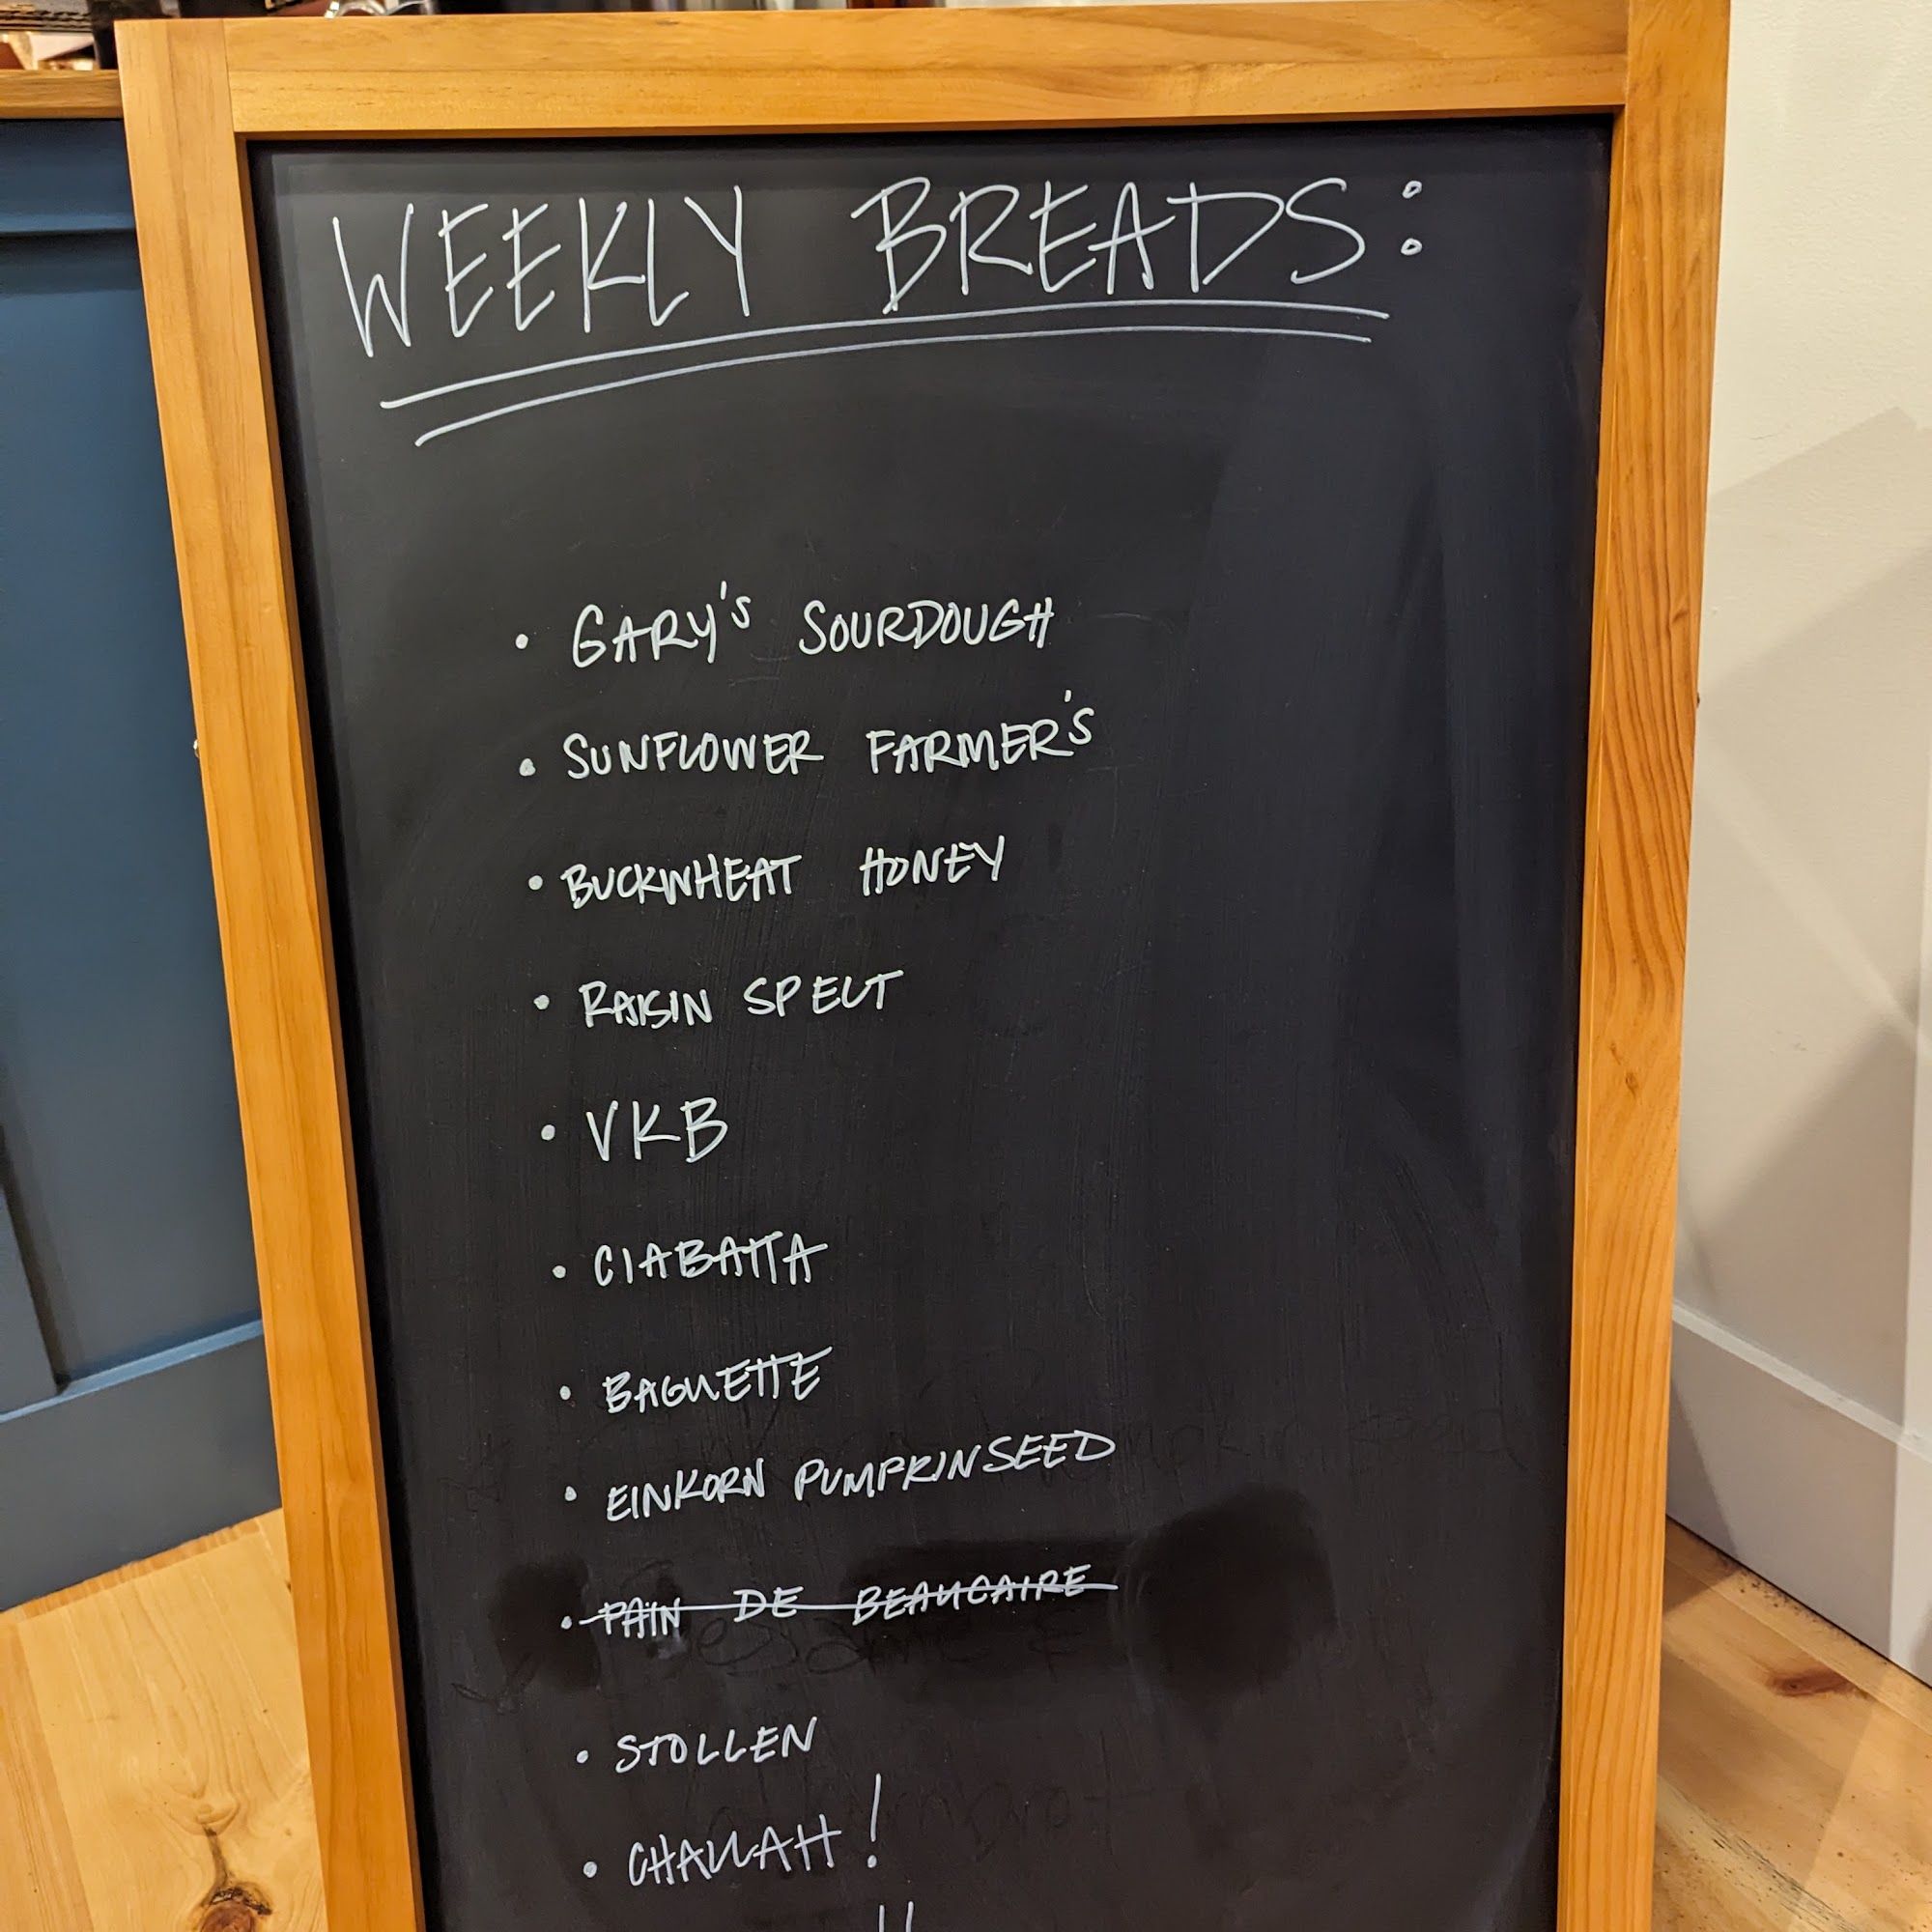 WEEKLY BREADS:
• GARY'S SOURDOUGH
• SUNFLOWER FARMER'S
• BUCKWHEAT HONEY
• RAISIN SPELT
• VKB
• CIABATTA
• BAGUETTE
• EINKORN PUMPKINSEED
• PAIN DE BEAUCAIRE
• STOLLEN
• CHALLAH!